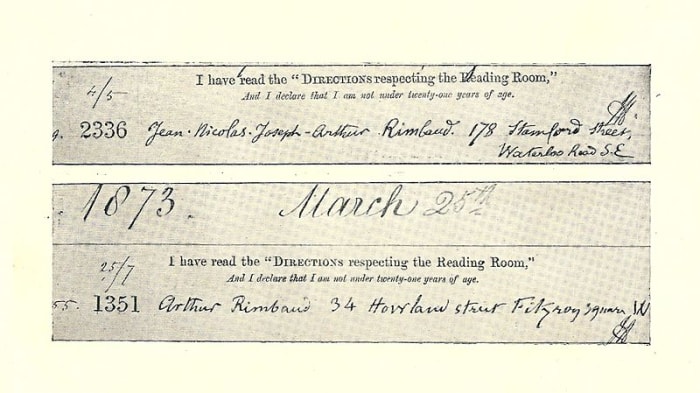 I have read the “DIRECTIONS respecting the Reading Room,”
4/5
And I declare that I am not under twenty-one years of age.
9. 2336 Jean-Nicolas-Joseph-Arthur Rimbaud. 178 Stamford Street,
Waterloo Road S.E
1873. March 25th
25/7
I have read the “DIRECTIONS respecting the Reading Room,”
And I declare that I am not under twenty-one years of age.
55. 1351 Arthur Rimbaud 34 Howland street Fitzroy square, W